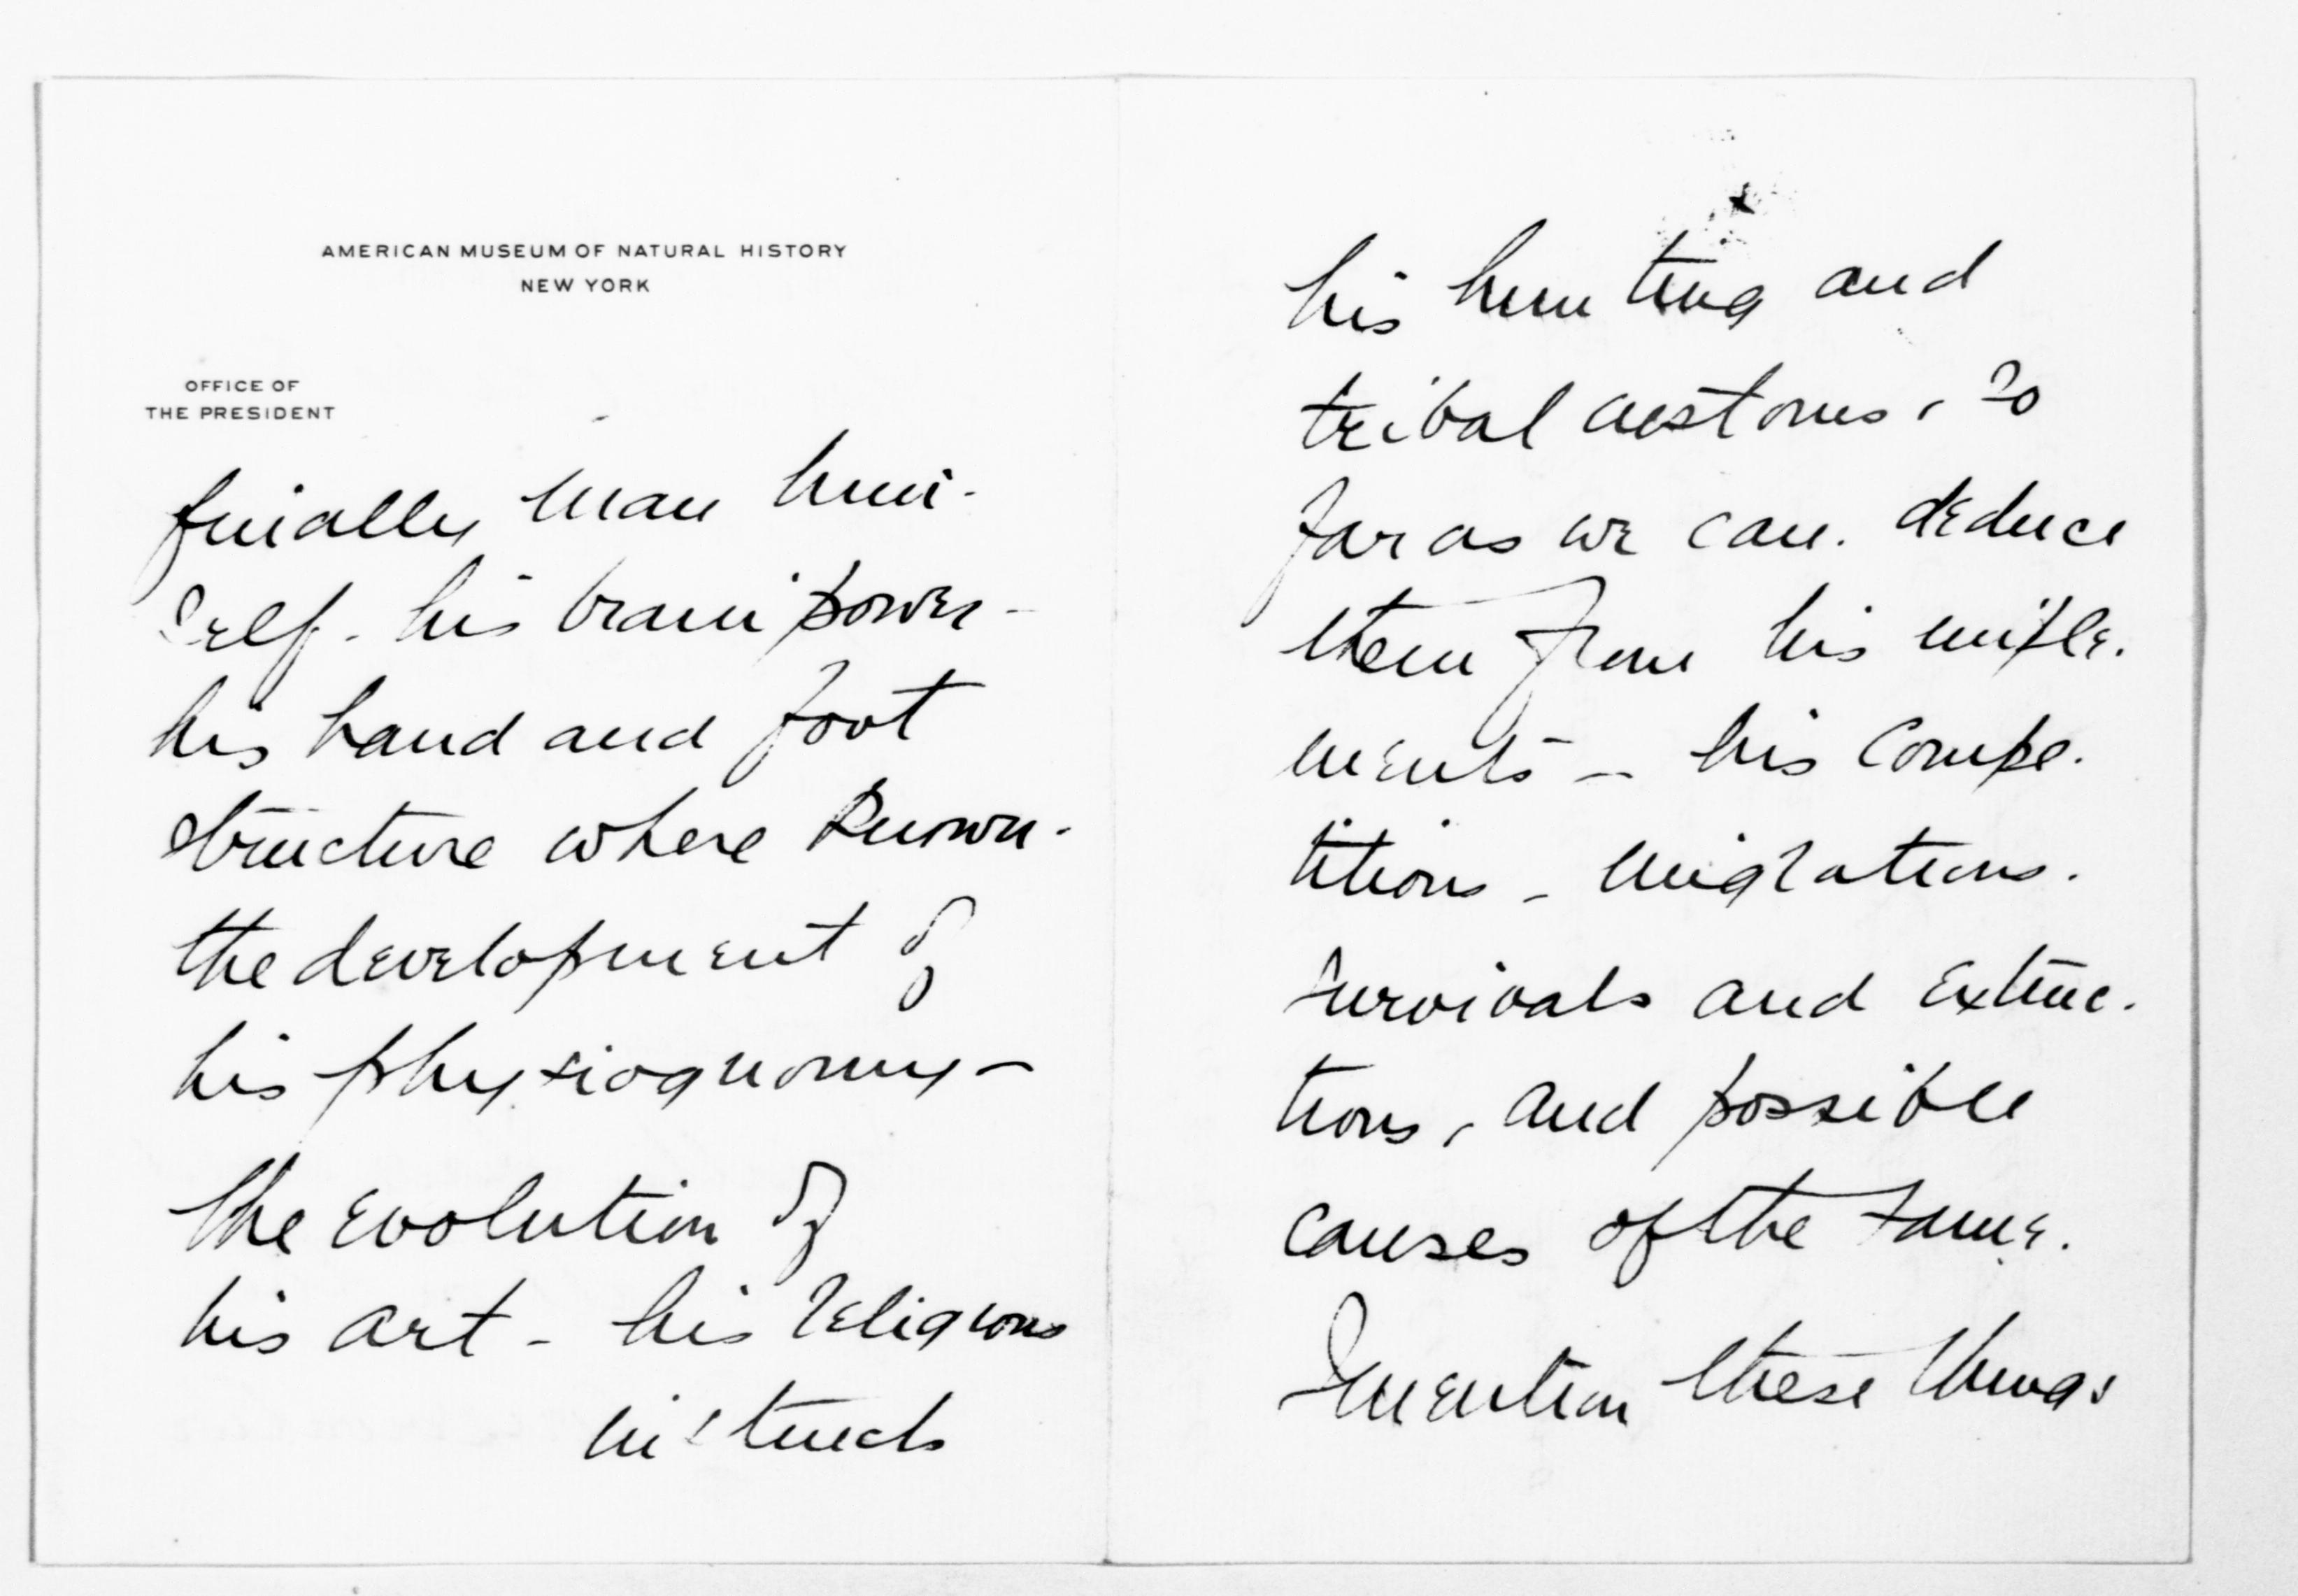 AMERICAN MUSEUM OF NATURAL HISTORY
NEW YORK
OFFICE OF
THE PRESIDENT
finally man him-
self - his brain power -
his hand and foot
structure where known -
the development of
his physiognomy -
the evolution of
his art - his religious
instincts
his hunting and
tribal customs, so
far as we can deduce
them from his imple-
ments - his compe-
titions - migrations -
survivals and extinc-
tions, and possible
causes of the same.
I mention these things